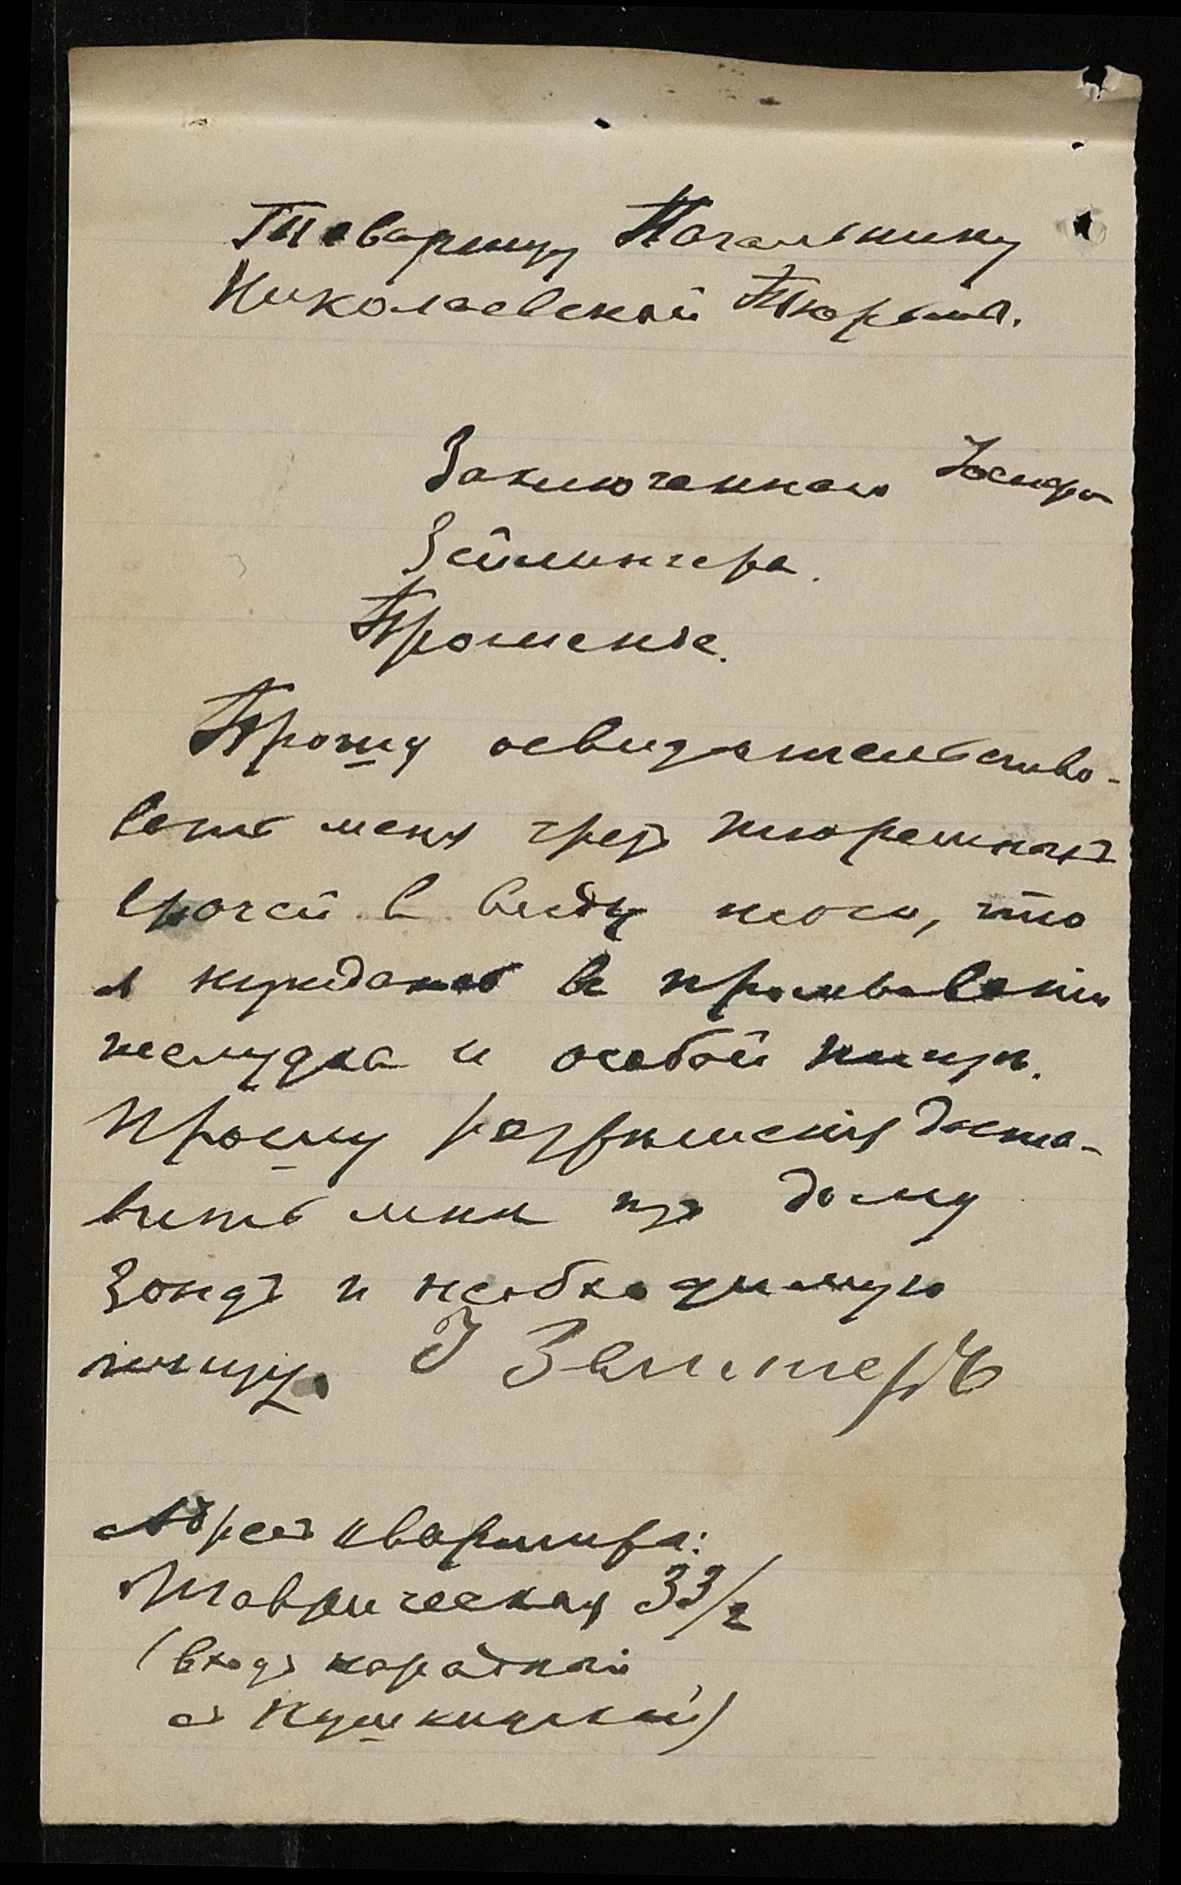 Товарищу Начальнику
Николаевской Тюрьмы.
Заключеннаго Iосифа
Зейлингера.
Прошенiе.
Прошу освидѣтельство-
вать меня чрезъ тюремныхъ
врачей в виду того, что
я нуждаюсь въ промыванiи
желудка и особой пищѣ.
Прошу разрѣшенiя доста-
вить мнѣ изъ дому
зондъ и необходимую
пищу. I Зейлингеръ
Адресъ квартиры:
Таврическая 33/2
(входъ парадный
съ Пушкинской)